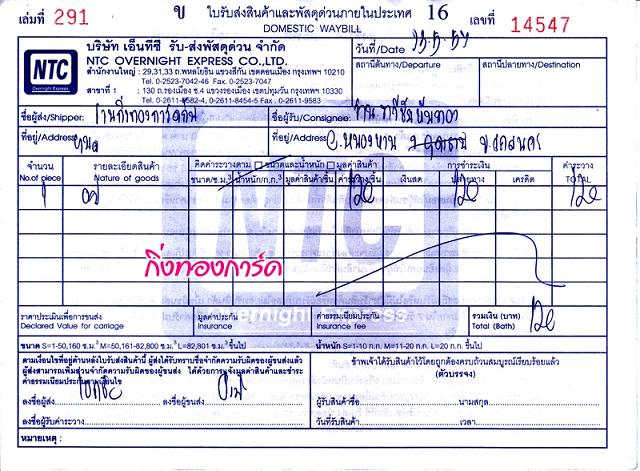 เล่มที่ 291
ข ใบรับส่งสินค้าและพัสดุด่วนภายในประเทศ 16
DOMESTIC WAYBILL
เลขที่ 14547
NTC
Overnight Express
บริษัท เอ็นทีซี รับ-ส่งพัสดุด่วน จำกัด
NTC OVERNIGHT EXPRESS CO.,LTD.
สำนักงานใหญ่ : 29,31,33 ถ.พหลโยธิน แขวงสีกัน เขตดอนเมือง กรุงเทพฯ 10210
Tel. 0-2523-7042-46 Fax. 0-2523-7047
สาขาที่ 1 : 130 ถ.รองเมือง ซ.4 แขวงรองเมือง เขตปทุมวัน กรุงเทพฯ 10330
Tel. 0-2611-8582-4, 0-2611-8454-5 Fax : 0-2611-9583
วันที่/Date
สถานีต้นทาง/Departure
สถานีปลายทาง/Destination
ชื่อผู้ส่ง/Shipper: ร้านกิ่งทองการ์ด
ชื่อผู้รับ/Consignee:
ที่อยู่/Address
ที่อยู่/Address อ.หนองหาน จ.สกลนคร
จำนวน No.of piece
รายละเอียดสินค้า Nature of goods
คิดค่าระวางตาม ขนาดและน้ำหนัก มูลค่าสินค้า
ขนาด/ซ.ม.³ น้ำหนัก/ก.ก.³ มูลค่าสินค้า/ชิ้น ค่าระวาง/ชิ้น
การชำระเงิน
เงินสด ปลายทาง เครดิต
ค่าระวาง TOTAL
1 120 120 120
กิ่งทองการ์ด
ราคาประเมินเพื่อการขนส่ง
Declared Value for carriage
มูลค่าประกัน
Insurance
ค่าธรรมเนียมประกัน
Insurance fee
รวมเงิน (บาท)
Total (Bath) 120
ขนาด S=1-50,160 ซ.ม.³ M=50,161-82,800 ซ.ม.³ L=82,801 ซ.ม.³ขึ้นไป
น้ำหนัก S=1-10 ก.ก. M=11-20 ก.ก. L=20 ก.ก. ขึ้นไป
ตามเงื่อนไขที่อยู่ด้านหลังใบรับส่งสินค้านี้ ผู้ส่งได้รับทราบข้อจำกัดความรับผิดของผู้ขนส่งแล้ว
ผู้ส่งสามารถเพิ่มส่วนจำกัดความรับผิดของผู้ขนส่ง ได้ด้วยการแจ้งมูลค่าสินค้าและชำระ
ค่าธรรมเนียมประกันตามเงื่อนไข
ข้าพเจ้าได้รับสินค้าไว้โดยถูกต้องครบถ้วนสมบูรณ์เรียบร้อยแล้ว
(ตัวบรรจง)
ลงชื่อผู้ส่ง
ลงชื่อผู้ขนส่ง
ผู้รับสินค้าชื่อ
นามสกุล
ลงชื่อผู้รับค่าระวาง
วันที่รับสินค้า
เวลา
หมายเหตุ :